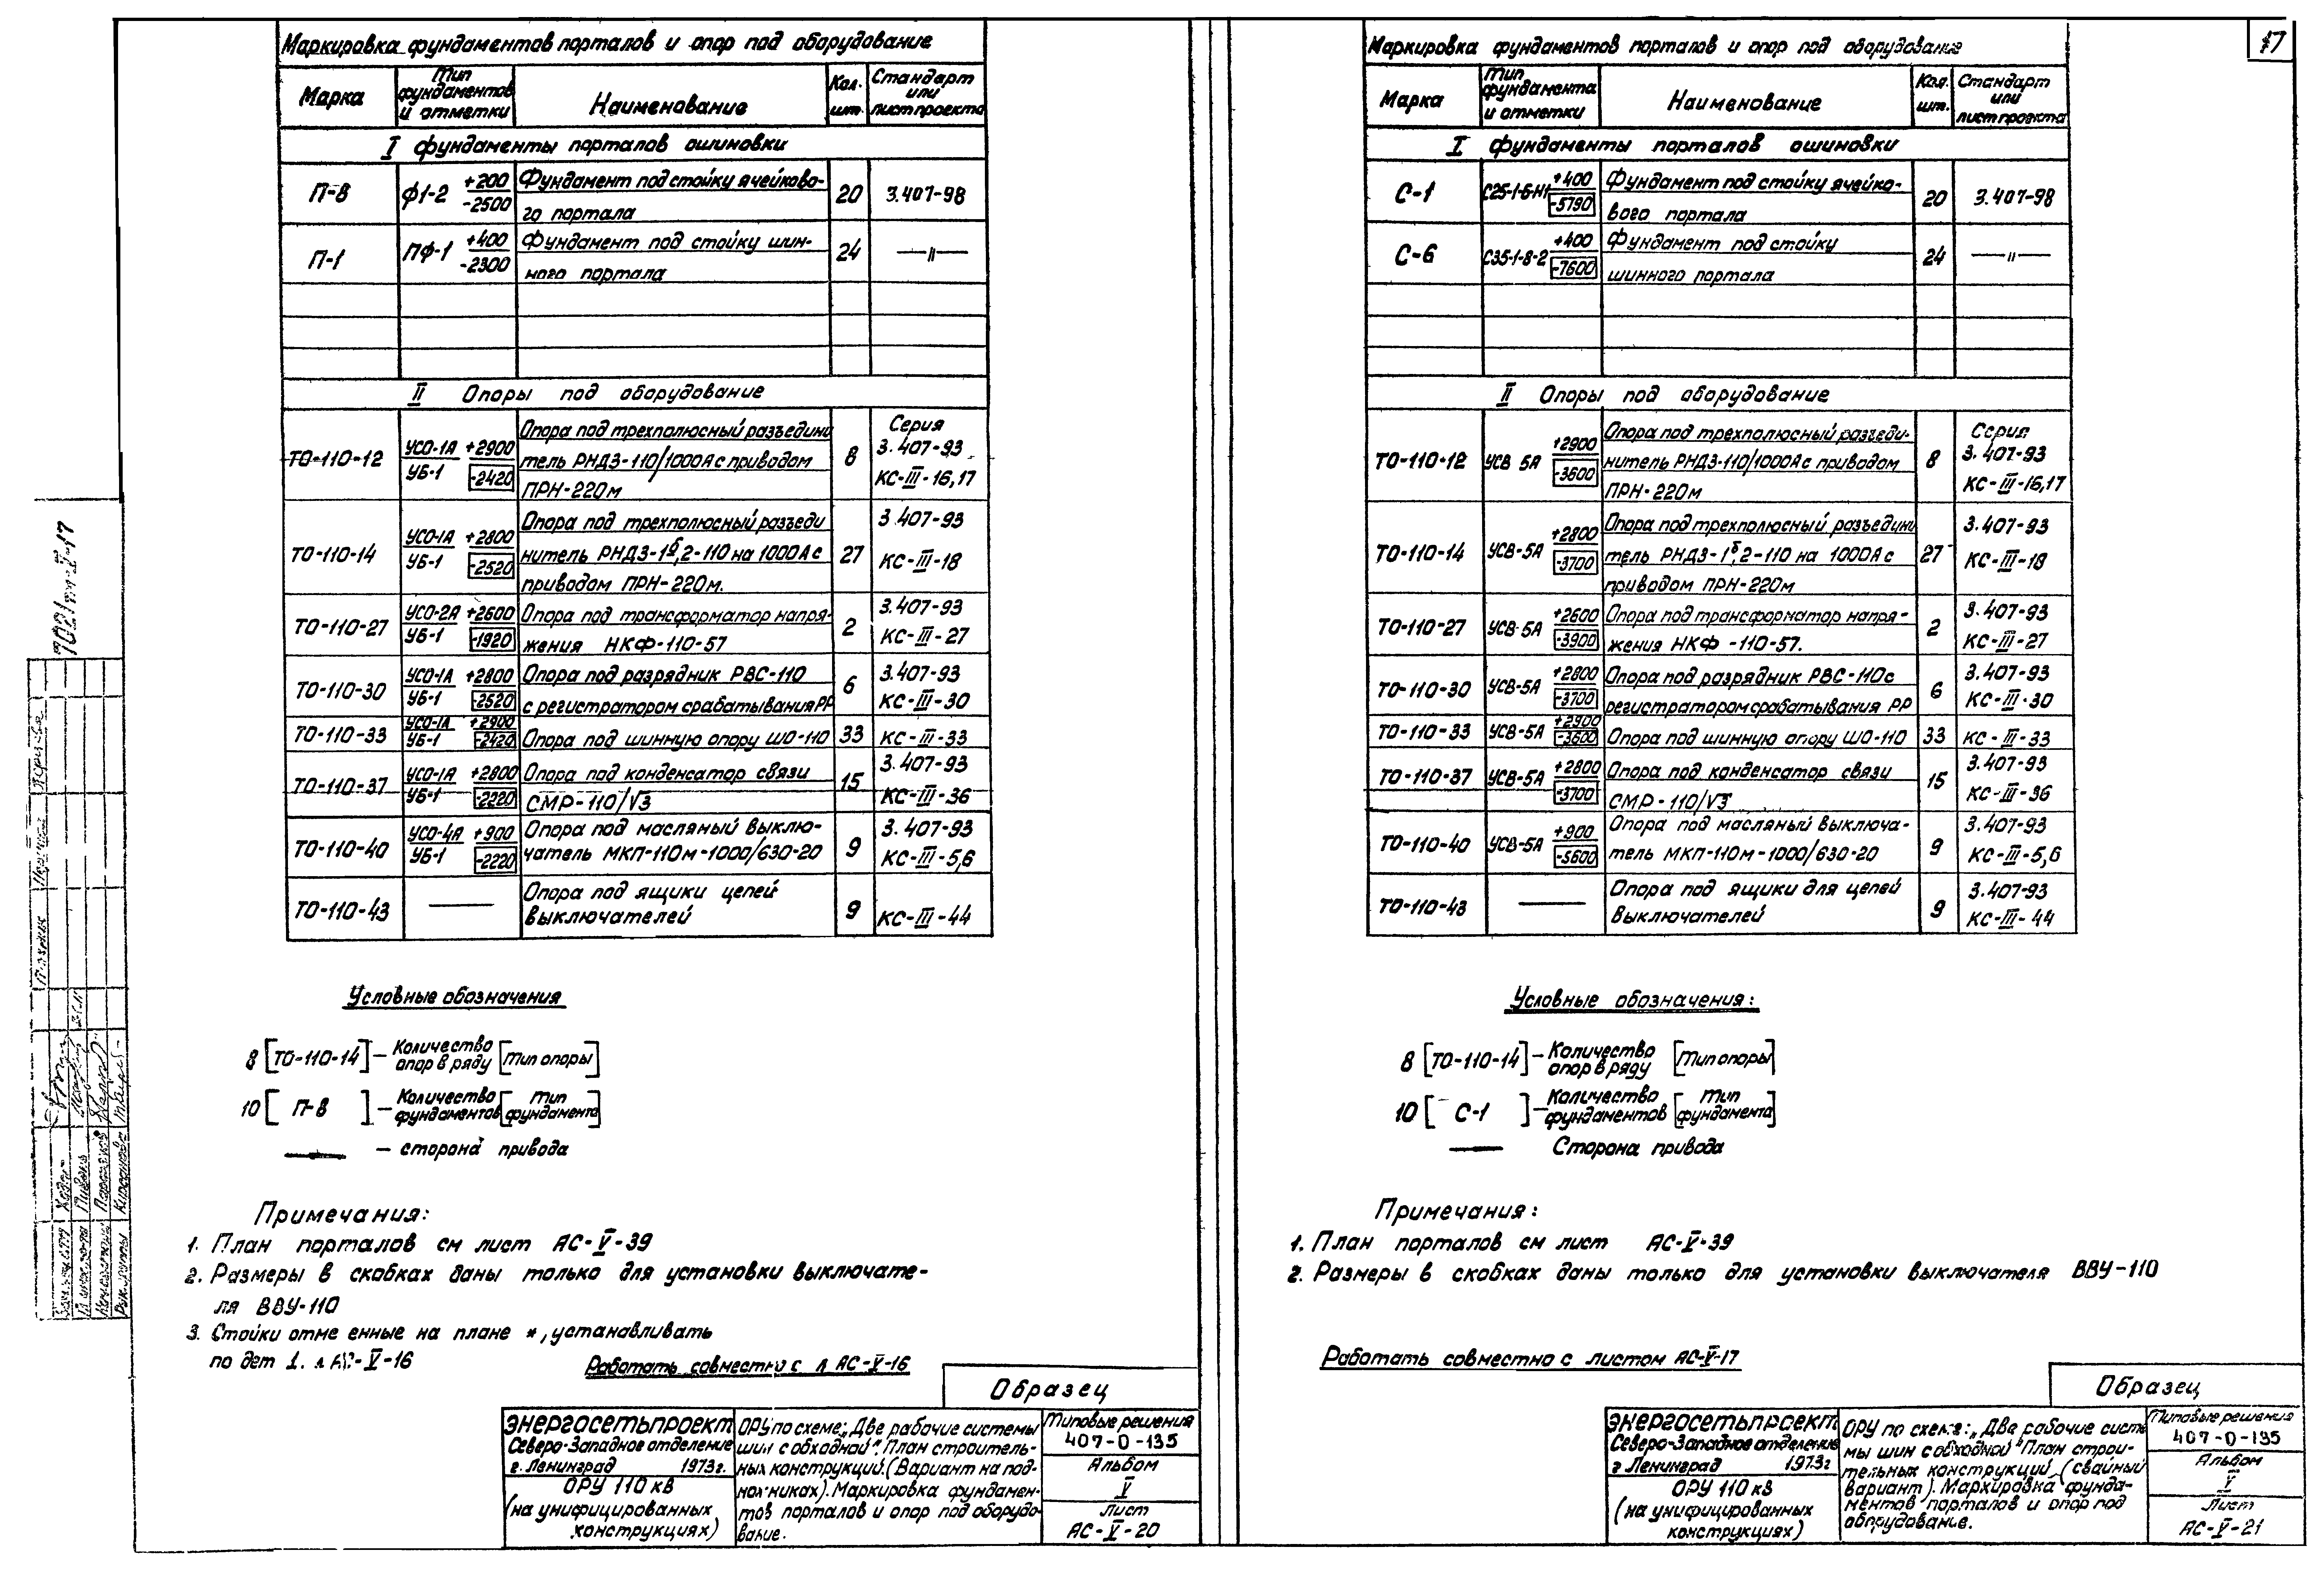 17
Маркировка фундаментов порталов и опор под оборудование
Марка
Тип фундаментов и отметки
Наименование
Кол. шт.
Стандарт или лист проекта
I фундаменты порталов ошиновки
П-8 Ф1-2 +200 -2500 Фундамент под стойку ячейково- 20 3.407-98
го портала
П-1 ПФ-1 +400 -2300 Фундамент под стойку шин- 24 —"—
ного портала
II Опоры под оборудование
ТО-110-12 УСО-1А УБ-1 +2900 -2420 Опора под трехполюсный разъедини 8 Серия 3.407-93
тель РНДЗ-110/1000А с приводом
ПРН-220м КС-III-16,17
ТО-110-14 УСО-1А УБ-1 +2800 -2520 Опора под трехполюсный разъеди 27 3.407-93
нитель РНДЗ-1б,2-110 на 1000А с КС-III-18
приводом ПРН-220м.
ТО-110-27 УСО-2А УБ-1 +2600 -1920 Опора под трансформатор напря- 2 3.407-93
жения НКФ-110-57 КС-III-27
ТО-110-30 УСО-1А УБ-1 +2800 -2520 Опора под разрядник РВС-110 6 3.407-93
с регистратором срабатывания РР КС-III-30
ТО-110-33 УСО-1А УБ-1 +2900 -2420 Опора под шинную опору ШО-110 33 КС-III-33
ТО-110-37 УСО-1А УБ-1 +2800 -2220 Опора под конденсатор связи 15 3.407-93
СМР-110/√3 КС-III-36
ТО-110-40 УСО-4А УБ-1 +900 -2220 Опора под масляный выклю- 9 3.407-93
чатель МКП-110м-1000/630-20 КС-III-5,6
ТО-110-43 — Опора под ящики цепей 9
выключателей КС-III-44
Условные обозначения
8 [ТО-110-14] – Количество опор в ряду [Тип опоры]
10 [П-8] – Количество фундаментов [Тип фундамента]
– сторона привода
Примечания:
1. План порталов см лист АС-V-39
2. Размеры в скобках даны только для установки выключате-
ля ВВУ-110
3. Стойки отме енные на плане *, устанавливать
по дет 1. л АС-V-16
Работать совместно с л АС-V-16
Образец
Энергосетьпроект
Северо-Западное отделение
г. Ленинград 1973г.
ОРУ 110 кв
(на унифицированных
конструкциях)
ОРУ по схеме: „Две рабочие системы
шин с обходной". План строитель-
ных конструкций. (Вариант на под-
ножниках). Маркировка фундамен-
тов порталов и опор под оборудо-
вание.
Типовые решения
407-0-135
Альбом
V
Лист
АС-V-20
Маркировка фундаментов порталов и опор под оборудование
Марка
Тип фундамента и отметки
Наименование
Кол. шт.
Стандарт или лист проекта
I фундаменты порталов ошиновки
С-1 С25-1-6-Н1 +400 -5790 Фундамент под стойку ячейко- 20 3.407-98
вого портала
С-6 С35-1-8-2 +400 -7600 Фундамент под стойку 24 —"—
шинного портала
II Опоры под оборудование
ТО-110-12 УСВ 5А +2900 -3600 Опора под трехполюсный разъеди- 8 Серия 3.407-93
нитель РНДЗ-110/1000А с приводом
ПРН-220м КС-III-16,17
ТО-110-14 УСВ-5А +2800 -3700 Опора под трехполюсный разъедини 27 3.407-93
тель РНДЗ-1б,2-110 на 1000А с КС-III-18
приводом ПРН-220м
ТО-110-27 УСВ-5А +2600 -3900 Опора под трансформатор напря- 2 3.407-93
жения НКФ-110-57. КС-III-27
ТО-110-30 УСВ-5А +2800 -3700 Опора под разрядник РВС-110с 6 3.407-93
регистратором срабатывания РР КС-III-30
ТО-110-33 УСВ-5А +2900 -3600 Опора под шинную опору ШО-110 33 КС-III-33
ТО-110-37 УСВ-5А +2800 -3700 Опора под конденсатор связи 15 3.407-93
СМР-110/√3 КС-III-36
ТО-110-40 УСВ-5А +900 -5600 Опора под масляный выключа- 9 3.407-93
тель МКП-110м-1000/630-20 КС-III-5,6
ТО-110-43 — Опора под ящики для цепей 9 3.407-93
выключателей КС-III-44
Условные обозначения:
8 [ТО-110-14] – Количество опор в ряду [Тип опоры]
10 [С-1] – Количество фундаментов [Тип фундамента]
Сторона привода
Примечания:
1. План порталов см лист АС-V-39
2. Размеры в скобках даны только для установки выключателя ВВУ-110
Работать совместно с листом АС-V-17
Образец
Энергосетьпроект
Северо-Западное отделение
г Ленинград 1973г
ОРУ 110 кв
(на унифицированных
конструкциях)
ОРУ по схеме: „Две рабочие систе
мы шин с обходной" План строи-
тельных конструкций (свайный
вариант). Маркировка фунда-
ментов порталов и опор под
оборудование.
Типовые решения
407-0-135
Альбом
V
Лист
АС-V-21
7021тм-V-17